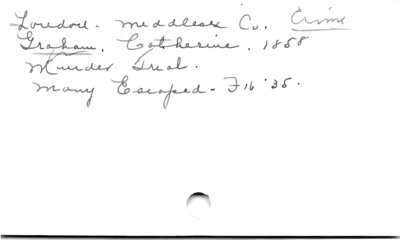 London - Middlesex Co. Crime
Graham, Catherine. 1858
Murder Trial.
Many Escaped - F 16 '35.